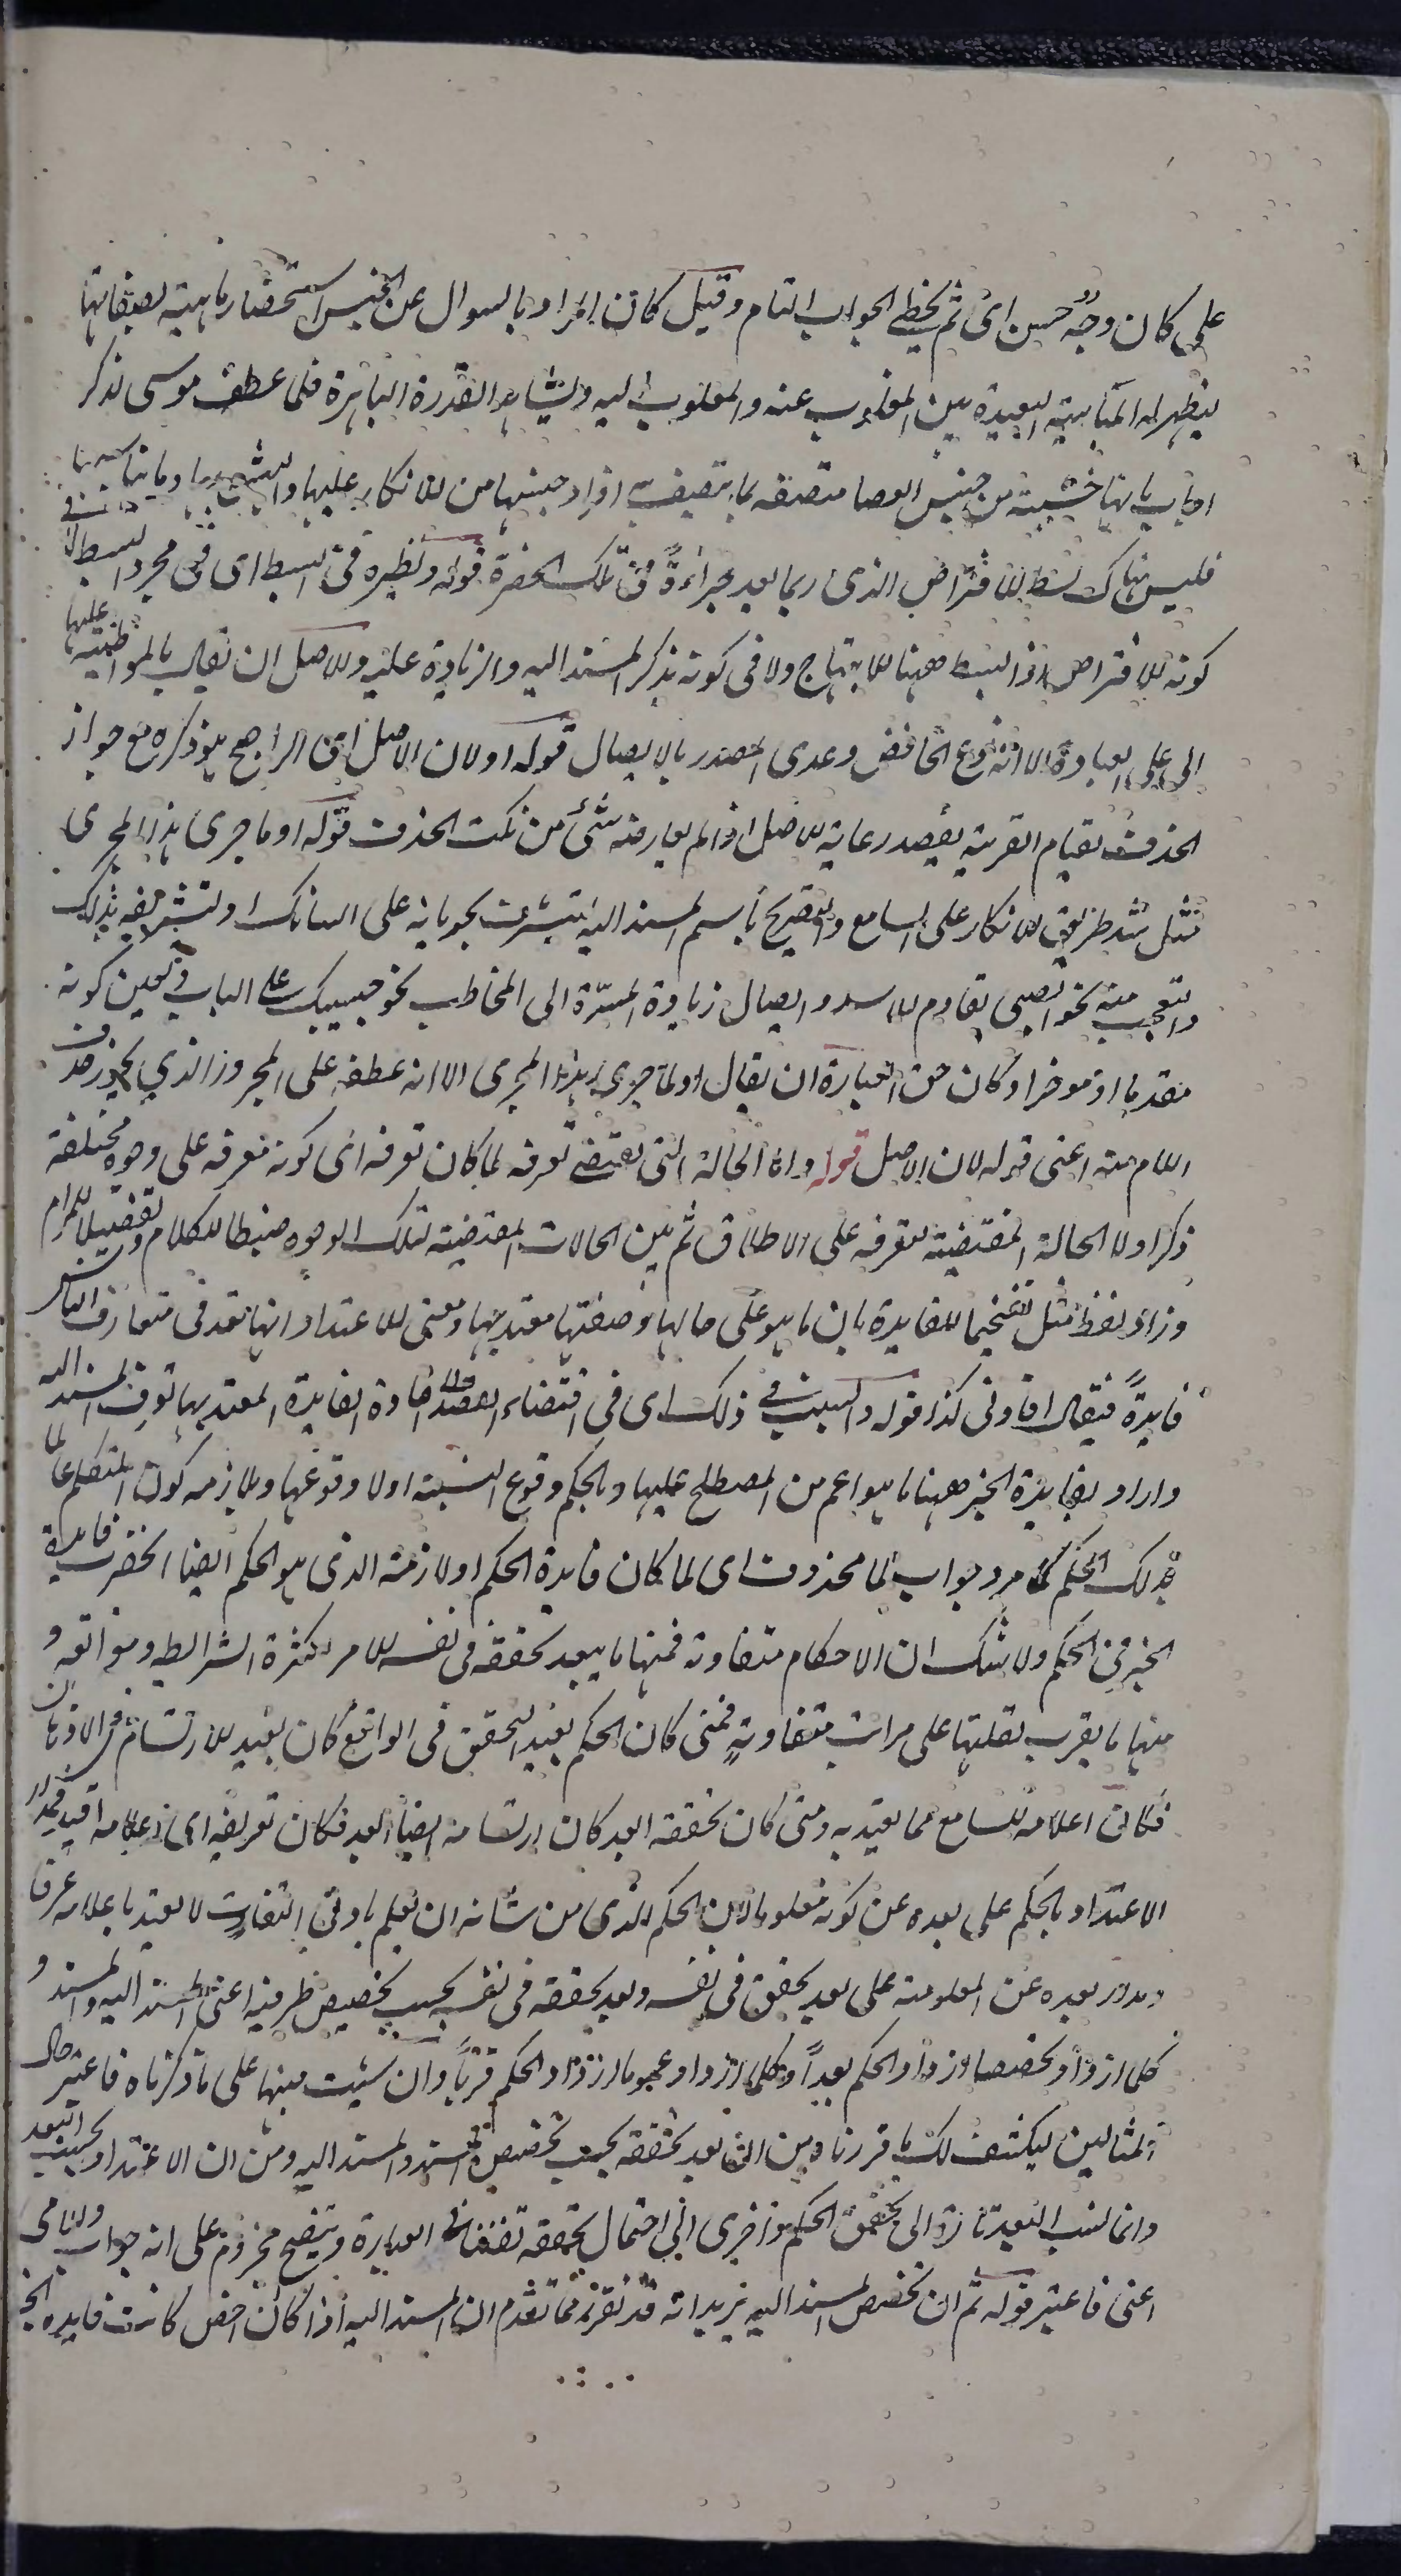 على كان وجه حسن اى ثم يخطى الجواب التام وقيل كان المراد بالسوال عن الجنس استحضار ماهيته بصفاتها
ليظهر له المباينة البعيدة بين المقلوب عنه والمقلوب اليه ويشاهد القدرة الباهرة فلما عطف موسى لذكر
اجاب بانها خشبة من جنس العصا متصفة بما يتصف به افراد جنسها من الاتكاء عليها وما يناسبها
فليس هناك بسط للافتراض الذى ربما يعد جراءة فى تلك الحضرة قوله ونظيره فى البسط اى فى مجرد البسط لا فى
كونه للافتراص اذ البسط ههنا للابتهاج ولا فى كونه بذكر المسند اليه والزيادة عليه والاصل ان يقال بالمواظبة عليها
اى على العبادة الا انه نزع الخافض وعدى المصدر بالايصال قوله اولان الاصل اى الراجح هو ذكره مع جواز
الحذف لقيام القرينة يقصد رعاية للاصل اذا لم يعارضه شئ من نكت الحذف قوله او ما جرى هذا المجرى
مثل سد طريق الانكار على السامع والتصريح باسم المسند اليه لتشرف بجريانه على اللسان او لتشريفه بذلك
والتعجب منه نحو الصبى يقاوم الاسد وايصال زيادة المسرة الى المخاطب نحو حبيبك على الباب وتعين كونه
مقدما او مؤخرا وكان حق العبارة ان يقال او لما جرى هذا المجرى الا انه عطفه على المجرور الذي يجوز حذف
اللام منه اعنى قوله لان الاصل قوله واما الحالة التى تقتضى تعرفه لما كان تعرفه اى كونه معرفة على وجوه مختلفة
ذكر اولا الحالة المقتضية لتعرفه على الاطلاق ثم بين الحالات المقتضية لتلك الوجوه ضبطا للكلام وتفصيلا للمرام
وزاد لفظ مثل تفخيما للفايدة بان ما هو على حالها وصفتها معتد بها ومعنى الاعتداد انها تعد فى متعارف الناس
فايدة فيقال افادنى كذا قوله والسبب فى ذلك اى فى اقتضاء القصد الى افادة الفايدة المعتد بها تعرف المسند اليه
واراد بفايدة الخبر ههنا ما هو اعم من المصطلح عليها وبالحكم وقوع النسبة اولا وقوعها وبلازمه كون المتكلم عالما
بذلك الحكم كما مر وجواب لما محذوف اى لما كان فايدة الحكم اولازمه الذى هو الحكم ايضا انحصرت فايدة
الخبر فى الحكم ولا شك ان الاحكام متفاوتة فمنها ما يبعد تحققه فى نفس الامر لكثرة الشرايط وموانعه و
منها ما يقرب لقلتها على مراتب متفاوتة فمتى كان الحكم بعيد التحقق فى الواقع كان بعيد الارتسام فى الاذهان
فكان اعلامه للسامع مما يعتد به ومتى كان تحققه ابعد كان ارتسامه ايضا ابعد فكان تعريفه اى اعلامه
الاعتداد بالحكم على بعده عن كونه معلوما لان الحكم الذى من شانه ان يعلم بادنى التفات لا يعتد باعلامه عرفا
ومدار بعده عن المعلومية على بعد تحققه فى نفسه وبعد تحققه فى نفسه بحسب تخصيص طرفيه اعنى المسند اليه والمسند و
كلما ازداد تخصصا ازداد الحكم بعدا وكلما ازداد عموما ازداد الحكم قربا وان شئت منبها على ما ذكرناه فاعتبر حال
المثالين ليكشف لك ما قررناه من ان بعد تحققه بحسب تخصيص المسند والمسند اليه ومن ان الاعتداد بحسب البعد
وانما نسب البعد تارة الى تحقق الحكم واخرى الى احتمال تحققه تفننا فى العبارة ويتضح مجزوم على انه جواب
اعنى فاعتبر قوله ثم ان تخصيص المسند اليه يريد انه قد تقرر مما تقدم ان المسند اليه اذا كان اخص كانت فايدة الخبر